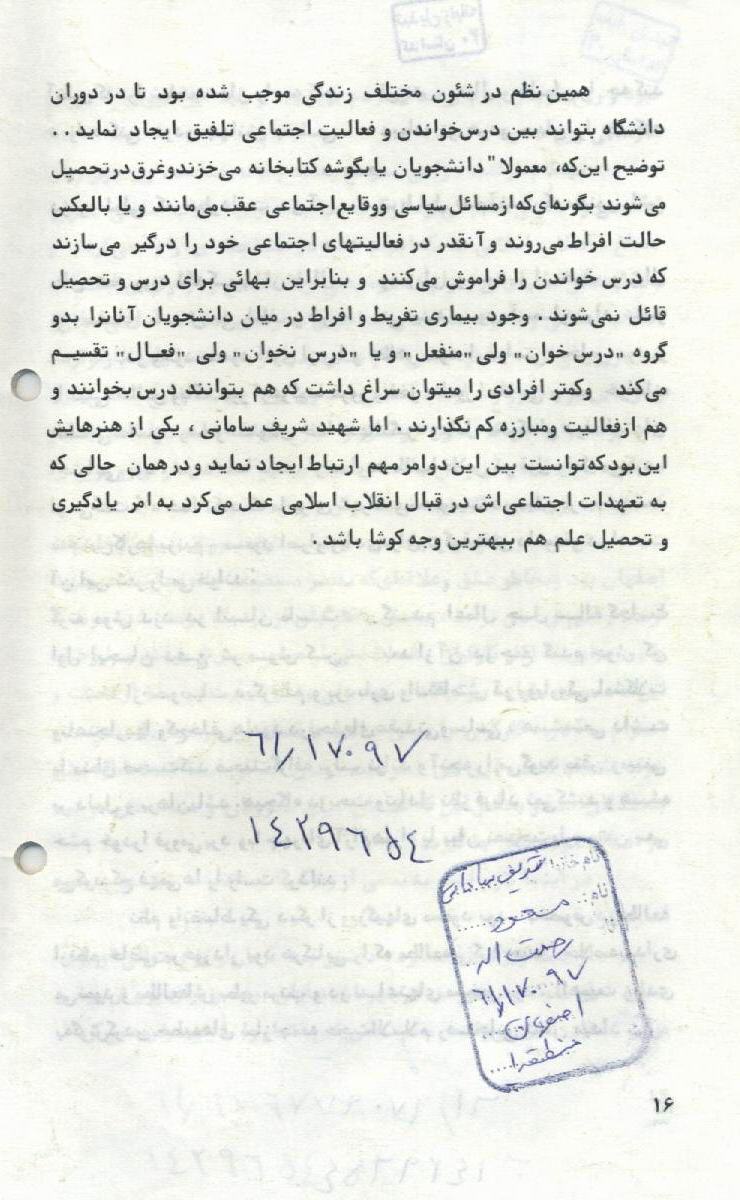 همین نظم در شئون مختلف زندگی موجب شده بود تا در دوران
دانشگاه بتواند بین درس‌خواندن و فعالیت اجتماعی تلفیق ایجاد نماید . .
توضیح این‌که، معمولا" دانشجویان یا بگوشه کتابخانه می‌خزند و غرق در تحصیل
می‌شوند بگونه‌ای که از مسائل سیاسی و وقایع اجتماعی عقب می‌مانند و یا بالعکس
حالت افراط می‌روند و آنقدر در فعالیتهای اجتماعی خود را درگیر می‌سازند
که درس خواندن را فراموش می‌کنند و بنابراین بهائی برای درس و تحصیل
قائل نمی‌شوند . وجود بیماری تفریط و افراط در میان دانشجویان آنانرا بدو
گروه "درس خوان" ولی "منفعل" و یا "درس نخوان" ولی "فعال" تقسیم
می‌کند وکمتر افرادی را میتوان سراغ داشت که هم بتوانند درس بخوانند و
هم از فعالیت ومبارزه کم نگذارند . اما شهید شریف سامانی ، یکی از هنرهایش
این بود که توانست بین این دو امر مهم ارتباط ایجاد نماید و در همان حالی که
به تعهدات اجتماعی‌اش در قبال انقلاب اسلامی عمل می‌کرد به امر یادگیری
و تحصیل علم هم ببهترین وجه کوشا باشد .
۶۱/۱۷۰۹۷
۱۴۲۹۶۵۴
نام خانوادگی
نام: مسعود
رحمت اله
۶۱/۱۷۰۹۷
۱۶